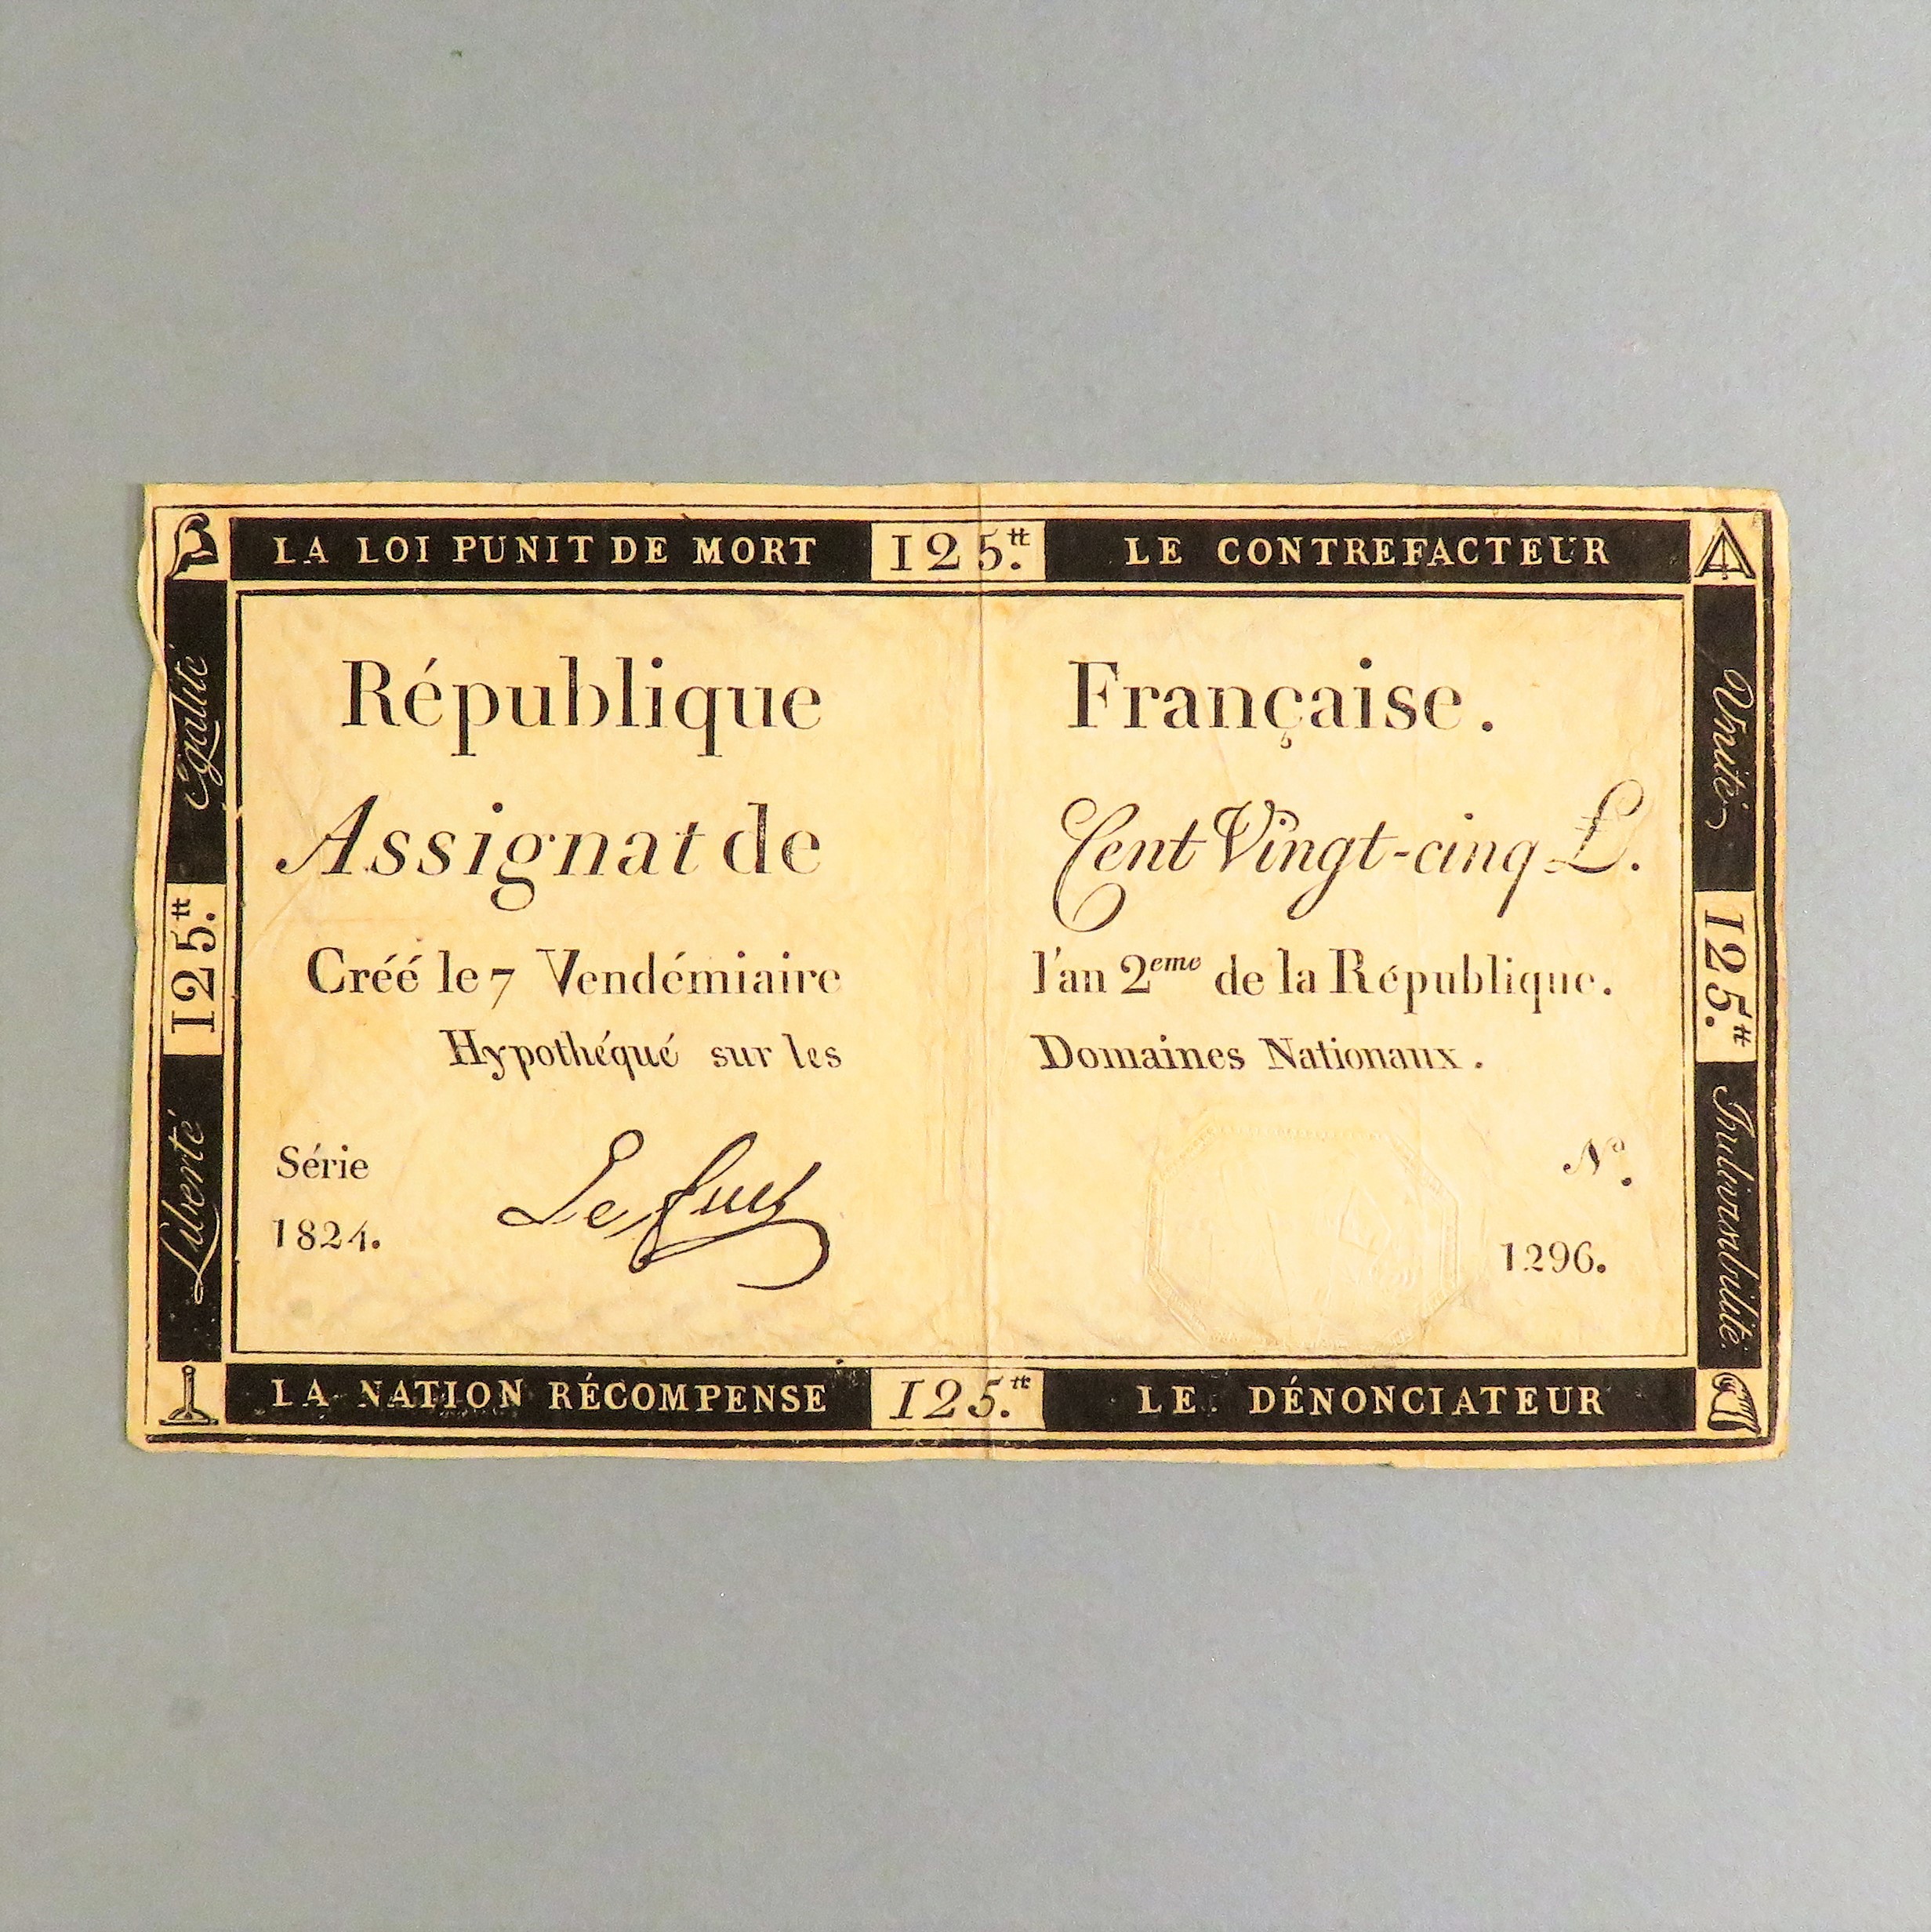 LA LOI PUNIT DE MORT 125.tt LE CONTREFACTEUR
Egalité
125.tt
Liberté
République Française.
Assignat de Cent Vingt-cinq L.
Créé le 7 Vendémiaire l'an 2eme de la République.
Hypothéqué sur les Domaines Nationaux.
Série
1824.
No.
1296.
Unité,
125.tt
Indivisibilité.
LA NATION RÉCOMPENSE 125.tt LE DÉNONCIATEUR